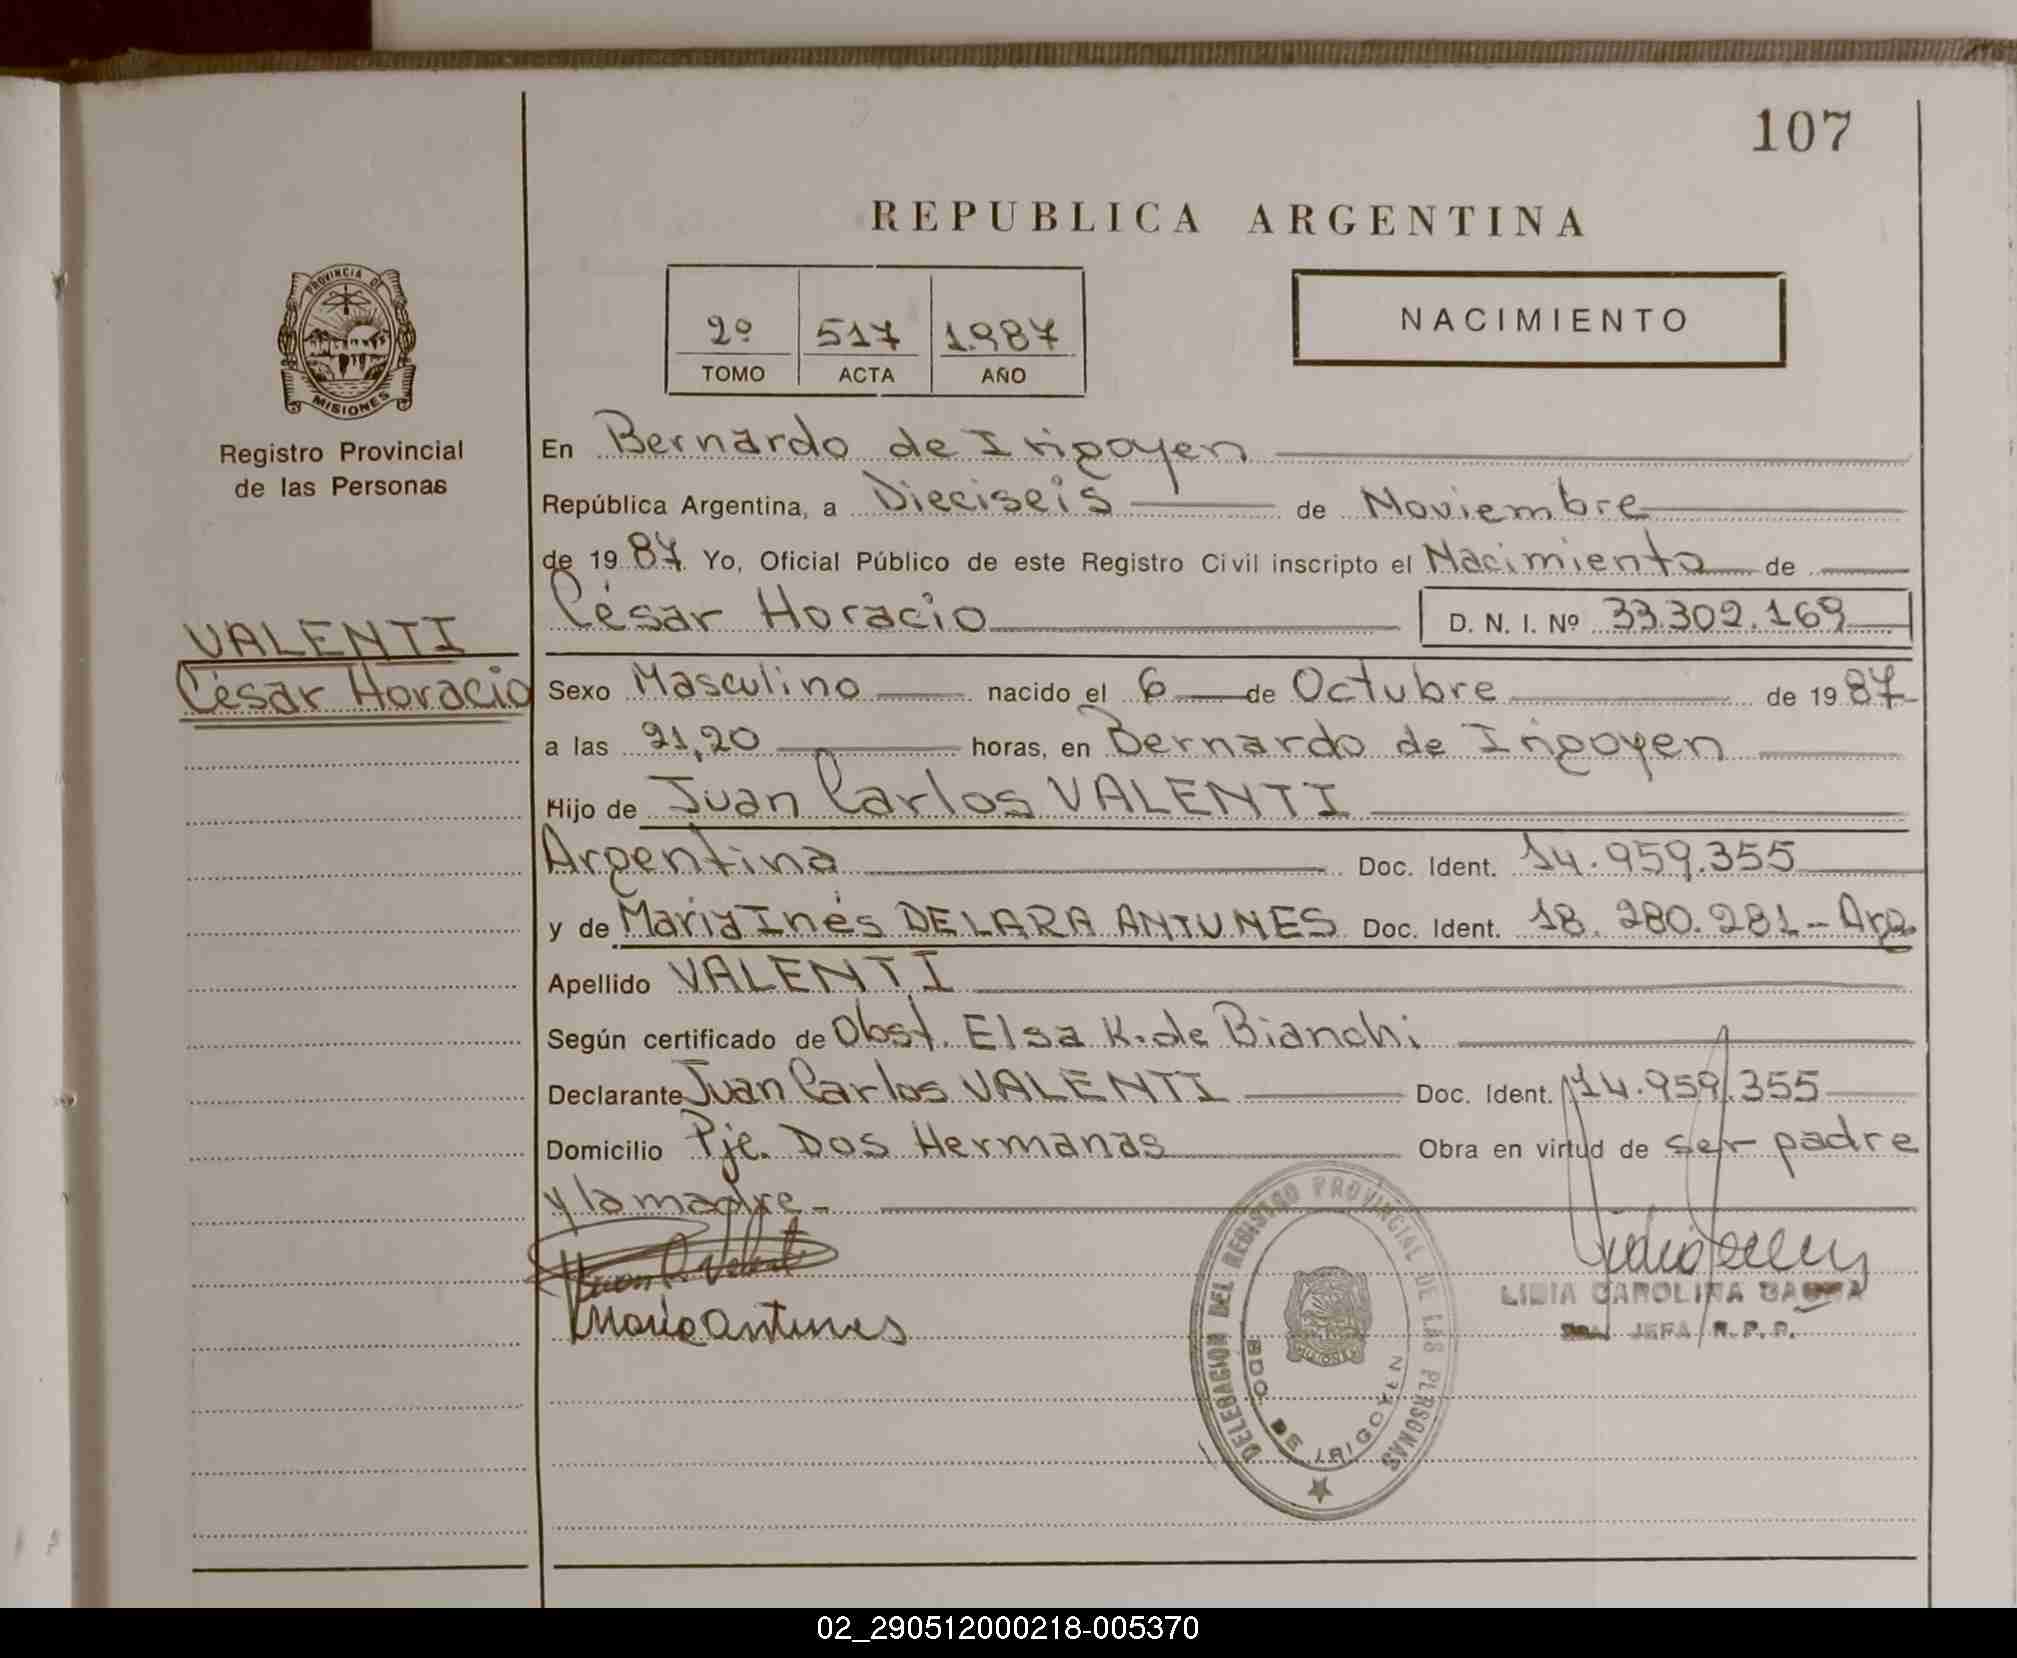 107
REPUBLICA ARGENTINA
PROVINCIA DE
MISIONES
Registro Provincial
de las Personas
2º 517 1.987
TOMO ACTA AÑO
NACIMIENTO
En Bernardo de Irigoyen
República Argentina, a Dieciseis de Noviembre
de 19 87. Yo, Oficial Público de este Registro Civil inscripto el Nacimiento de
César Horacio D. N. I. Nº 33.302.169
VALENTI
César Horacio
Sexo Masculino nacido el 6 de Octubre de 19 87
a las 21,20 horas, en Bernardo de Irigoyen
Hijo de Juan Carlos VALENTI
Argentina Doc. Ident. 14.959.355
y de María Inés DELARA ANTUNES Doc. Ident. 18.280.281 - Arg.
Apellido VALENTI
Según certificado de Obst. Elsa K. de Bianchi
Declarante Juan Carlos VALENTI Doc. Ident. 14.959.355
Domicilio Pje. Dos Hermanas Obra en virtud de ser padre
y la madre.-
Juan C. Valenti
Maria Antunes
DELEGACION DEL REGISTRO PROVINCIAL DE LAS PERSONAS
BDO. DE IRIGOYEN
MISIONES
LIDIA CAROLINA
JEFA R. P. P.
02_290512000218-005370